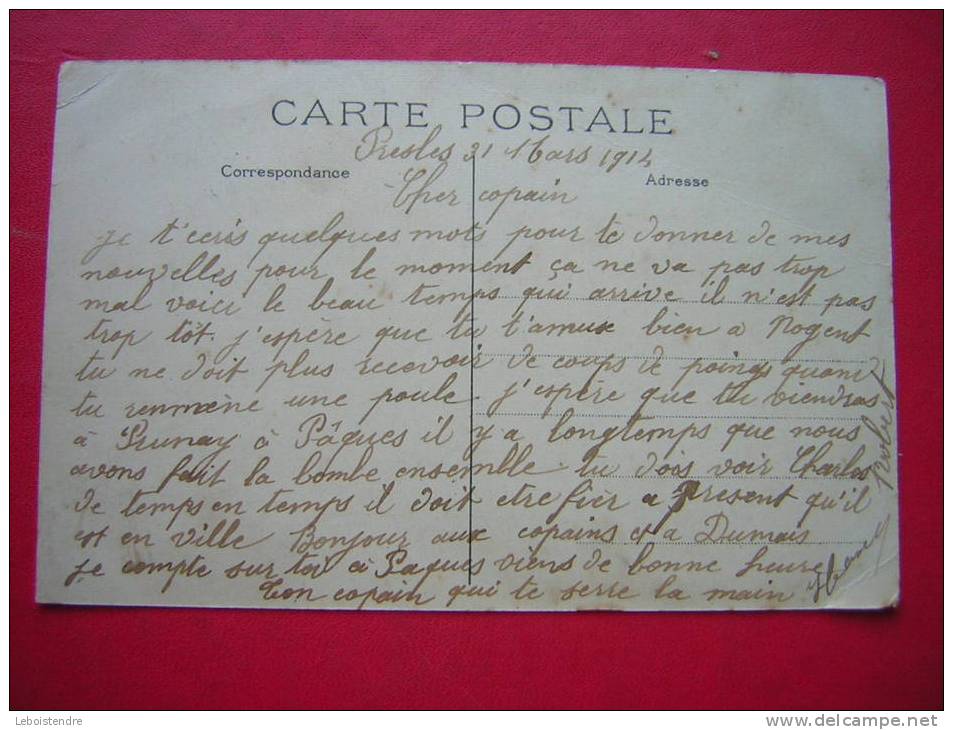 CARTE POSTALE
Presles 31 Mars 1914
Correspondance
Adresse
Cher copain
je t'ecris quelques mots pour te donner de mes
nouvelles pour le moment ça ne va pas trop
mal voici le beau temps qui arrive il n'est pas
trop tôt. j'espère que tu t'amuse bien a Nogent
tu ne doit plus recevoir de coups de poings quand
tu renmène une poule. j'espère que tu viendras
à Prunay à Pâques il y a longtemps que nous
avons fait la bombe ensemble. tu dois voir Charles
de temps en temps il doit etre fier a present qu'il
est en ville Bonjour aux copains et a Dumais
je compte sur toi à Paques viens de bonne heure
Ton copain qui te serre la main
Robert
Leboistendre
www.delcampe.net